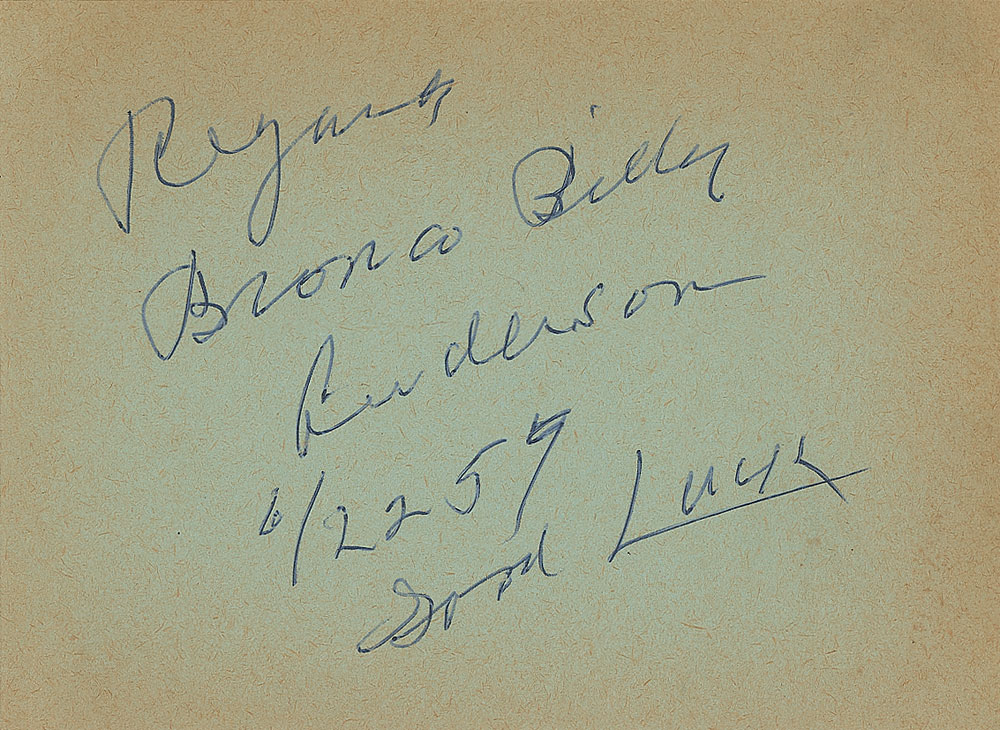 Regards
Bronco Billy
Anderson
Good Luck